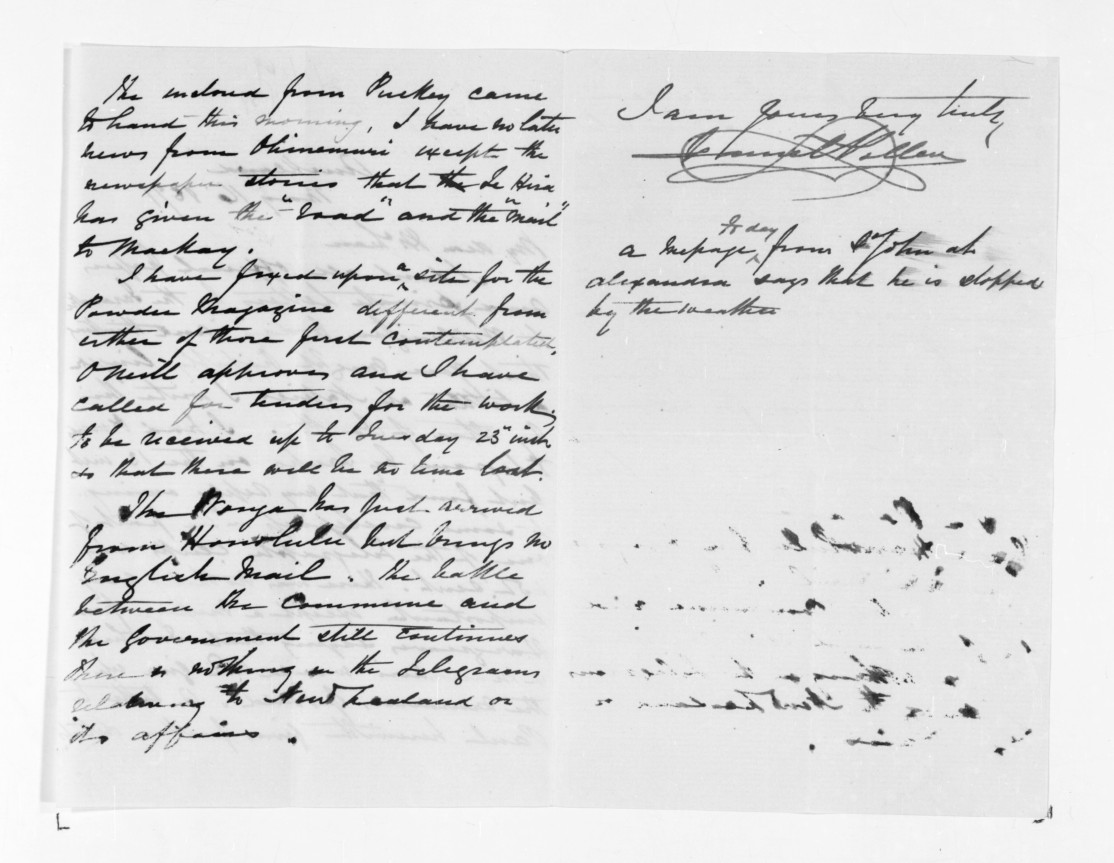 The enclosed from Puckey came
to hand this morning, I have no later
news from Ohinemuri except the
newspaper stories that the Te Hira
has given the "road" and the "mail"
to Mackay.
I have fixed upon a site for the
Powder Magazine different from
either of those first contemplated,
O'Neill approves and I have
called for tenders for the work,
to be received up to Tuesday 23rd inst.
so that there will be no time lost.
The Wonga has just arrived
from Honolulu but brings no
English Mail. The battle
between the Commune and
the Government still continues
there is nothing in the Telegrams
relating to New Zealand or
its affairs.
I am yours very truly
Daniel Pollen
a message today from St John at
Alexandra says that he is stopped
by the weather